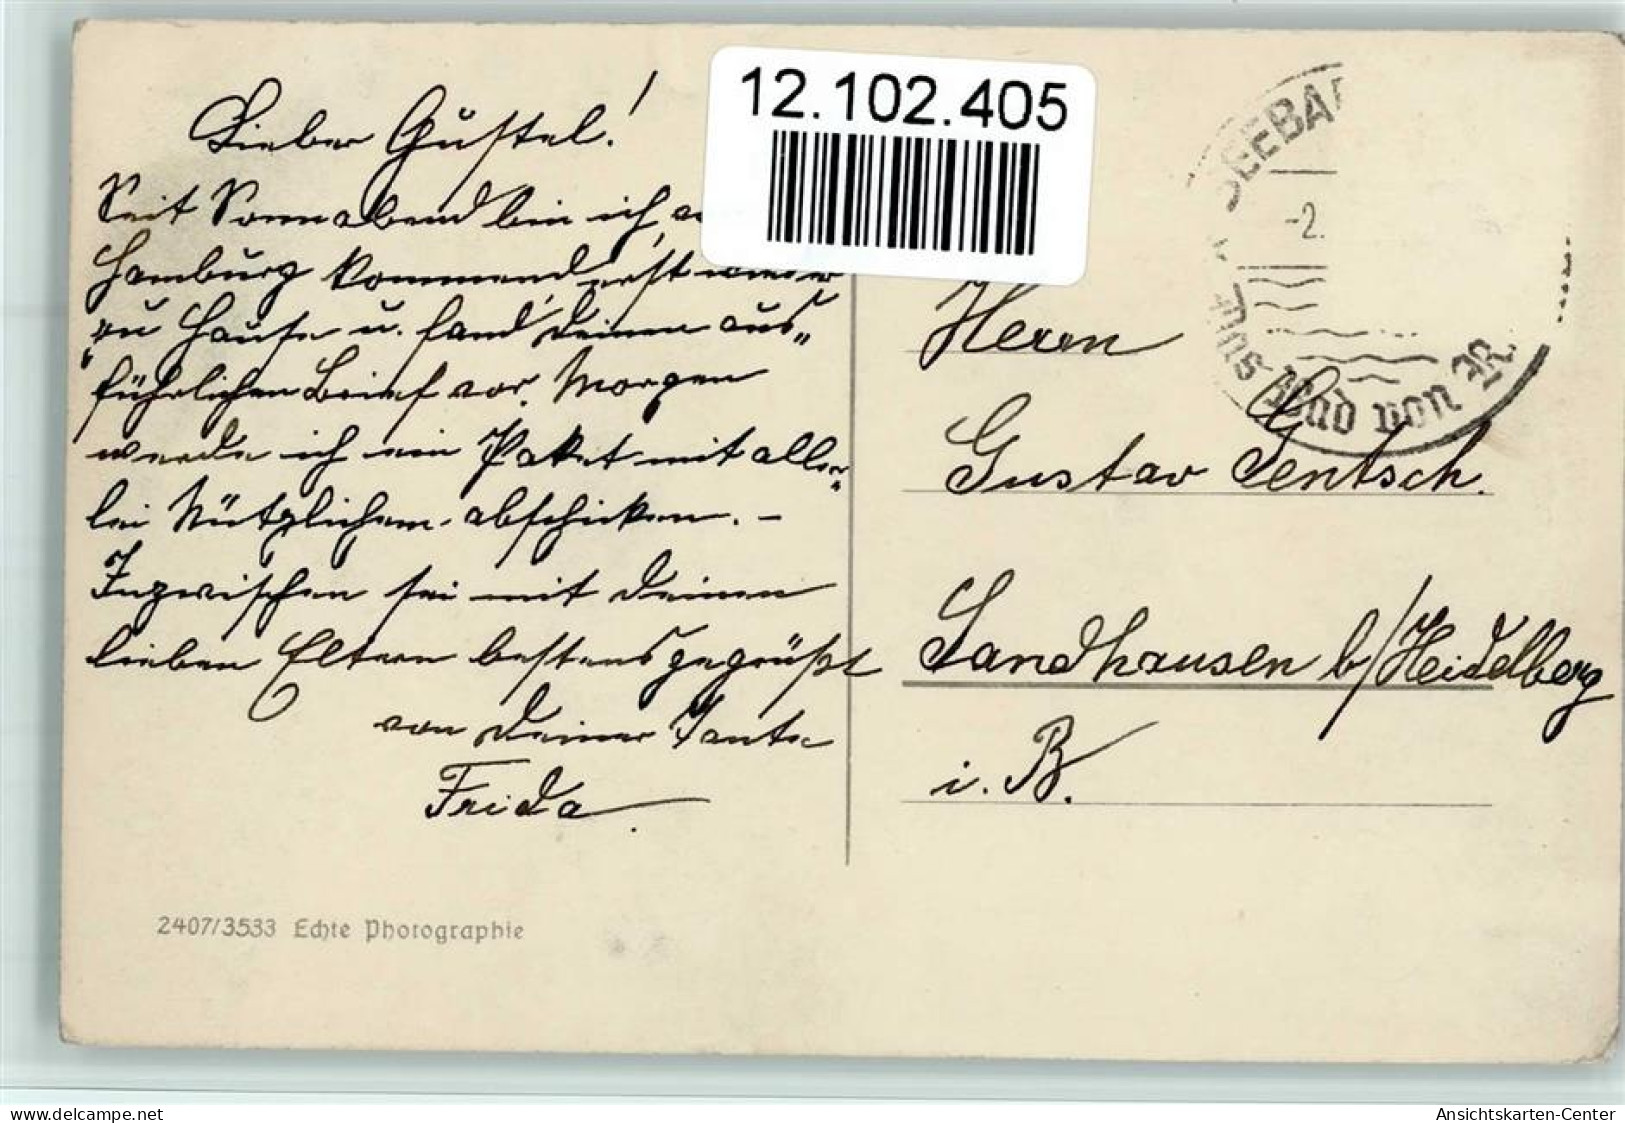 Lieber Gustel!
Seit Sonnabend bin ich,
Hamburg kommend, erst wieder
zu Hause u. fand Deinen aus-
führlichen Brief vor. Morgen
werde ich ein Paket mit aller-
lei Nützlichem abschicken. -
Inzwischen sei mit Deinen
lieben Eltern bestens gegrüßt
von Deiner Tante
Frida.
2407/3533 Echte Photographie
12.102.405
SEEBA
-2.
Das Bad von
Herrn
Gustav Jentsch.
Sandhausen b/Heidelberg
i. B.
www.delcampe.net
Ansichtskarten-Center